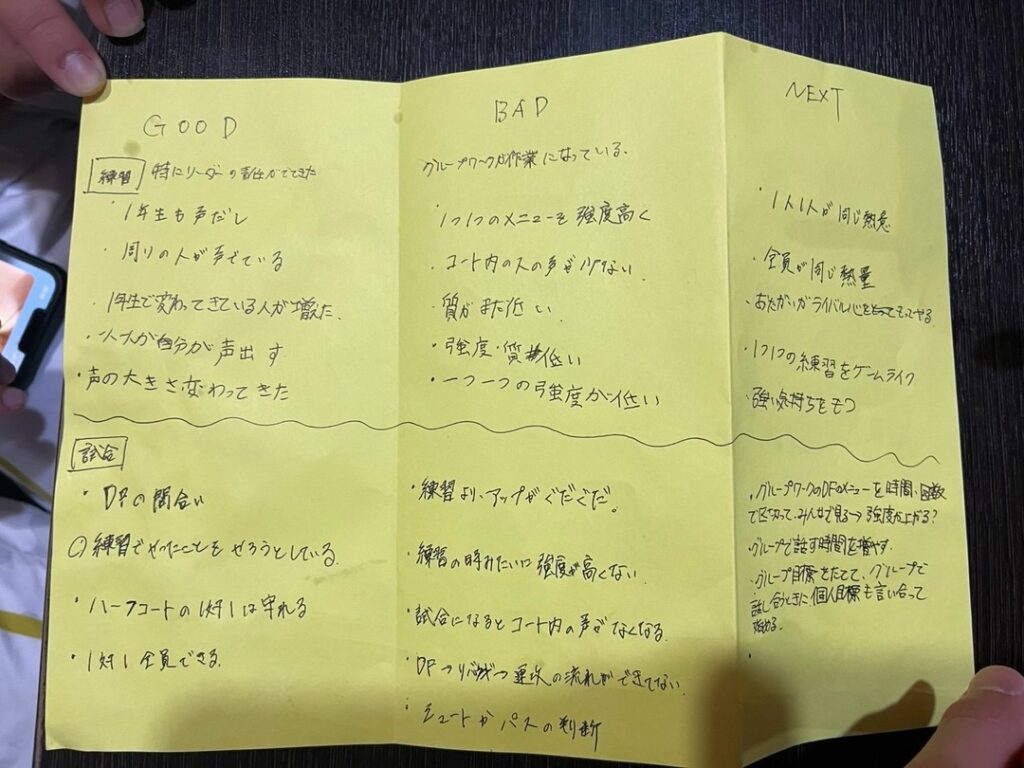 GOOD
練習 特にリーダーの責任がでてきた
・1年生も声だし
・周りの人が声でている
・1年生で変わってきている人が増えた.
・一人一人が自分が声出す
・声の大きさ変わってきた
試合
・DFの間合い
練習でやったことをやろうとしている.
・ハーフコートの1対1は守れる
・1対1全員できる.
BAD
グループワークが作業になっている.
・1つ1つのメニューを強度高く
・コート内の人の声が少ない.
・質がまだ低い.
・強度・質 低い
・一つ一つの強度が低い
・練習より、アップがぐだぐだ。
・練習の時みたいに強度が高くない.
・試合になるとコート内の声がなくなる.
・DF→リバウンド→速攻の流れができてない.
・シュートかパスの判断
NEXT
・1人1人が同じ熱意
・全員が同じ熱量
・おたがいがライバル心をもってやる
・1つ1つの練習をゲームライク
・強い気持ちをもつ
・グループワークのDFのメニューを時間、回数
で区切って、みんなで見る→強度が上がる?
・グループで話す時間を増やす.
・グループ目標をたてて、グループで
話し合うときに個人目標も言い合って
始める.